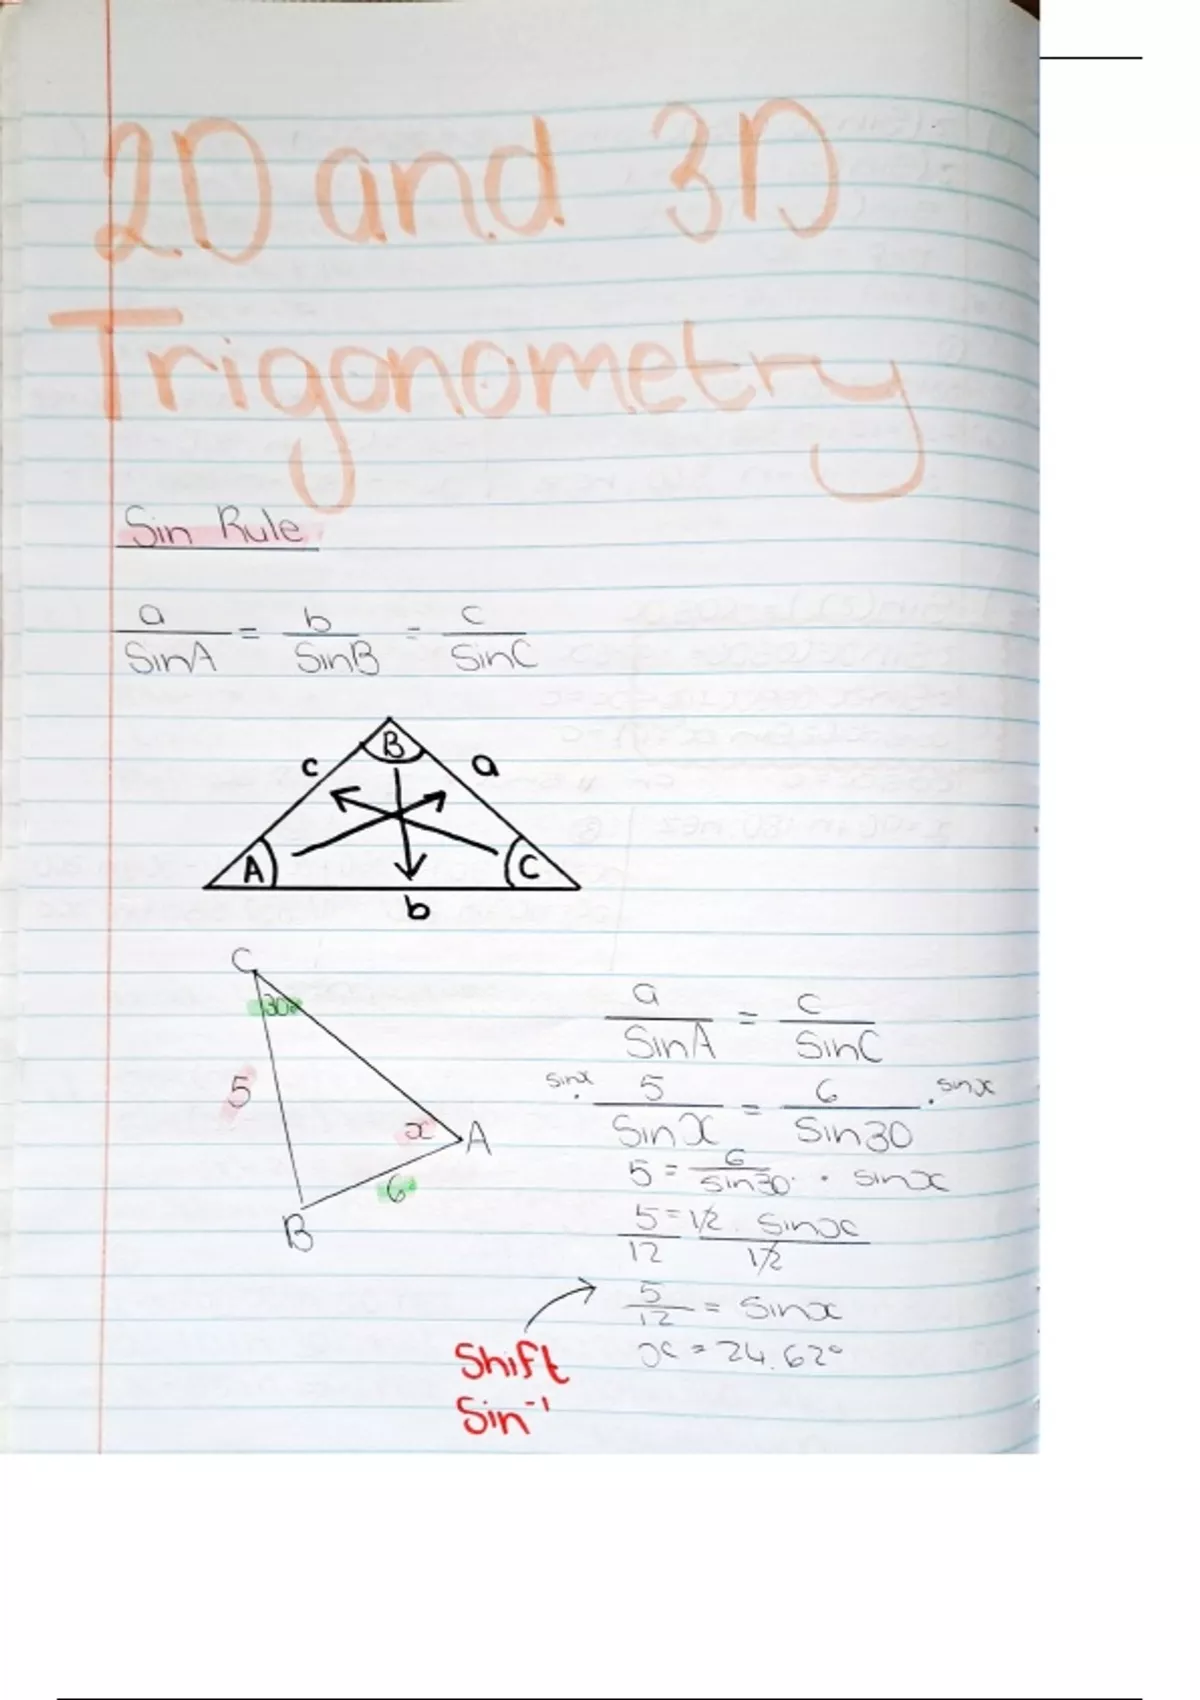 2D and 3D
Trigonometry
Sin Rule
a/SinA = b/SinB = c/SinC
B
c a
A C
b
C
30°
5
x A
6
B
a/SinA = c/SinC
sinx · 5/Sinx = 6/Sin30 · sinx
5 = 6/sin30 · sinx
5/12 = 1/2 · sinx / 1/2
5/12 = Sinx
x = 24.62°
Shift
Sin⁻¹